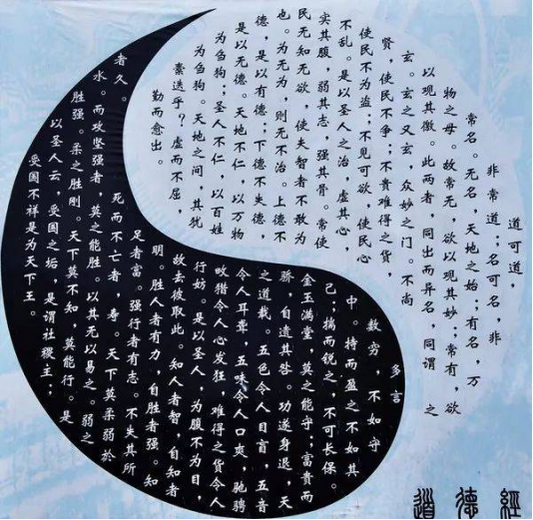 道可道，
非常道；名可名，非
常名。无名，天地之始；有名，万
物之母。故常无，欲以观其妙；常有，欲
以观其徼。此两者，同出而异名，同谓 之
玄。玄之又玄，众妙之门。不尚
贤，使民不争；不贵难得之货，
使民不为盗；不见可欲，使民心
不乱。是以圣人之治，虚其心，
实其腹，弱其志，强其骨。常使
民无知无欲，使夫智者不敢为
也。为无为，则无不治。上德不
德，是以有德；下德不失德，
是以无德。天地不仁，以万物
为刍狗；圣人不仁，以百姓
为刍狗。天地之间，其犹
乎？虚而不屈，
勤而愈出。
多言
数穷，不如守
中。持而盈之不如其
已；揣而锐之，不可长保。
金玉满堂，莫之能守；富贵而
骄，自遗其咎。功遂身退，天
之道哉。五色令人目盲，五音
令人耳聋，五味令人口爽，驰骋
畋猎令人心发狂，难得之货令人
行妨。是以圣人，为腹不为目，
故去彼取此。知人者智，自知者
明。胜人者有力，自胜者强。知
足者富。强行者有志。不失其所
者久。死而不亡者，寿。天下莫柔弱於
水。而攻坚强者，莫之能胜。以其无以易之。弱之
胜强。柔之胜刚。天下莫不知，莫能行。是
以圣人云，受国之垢，是谓社稷主；
受国不祥是为天下王。
道德經